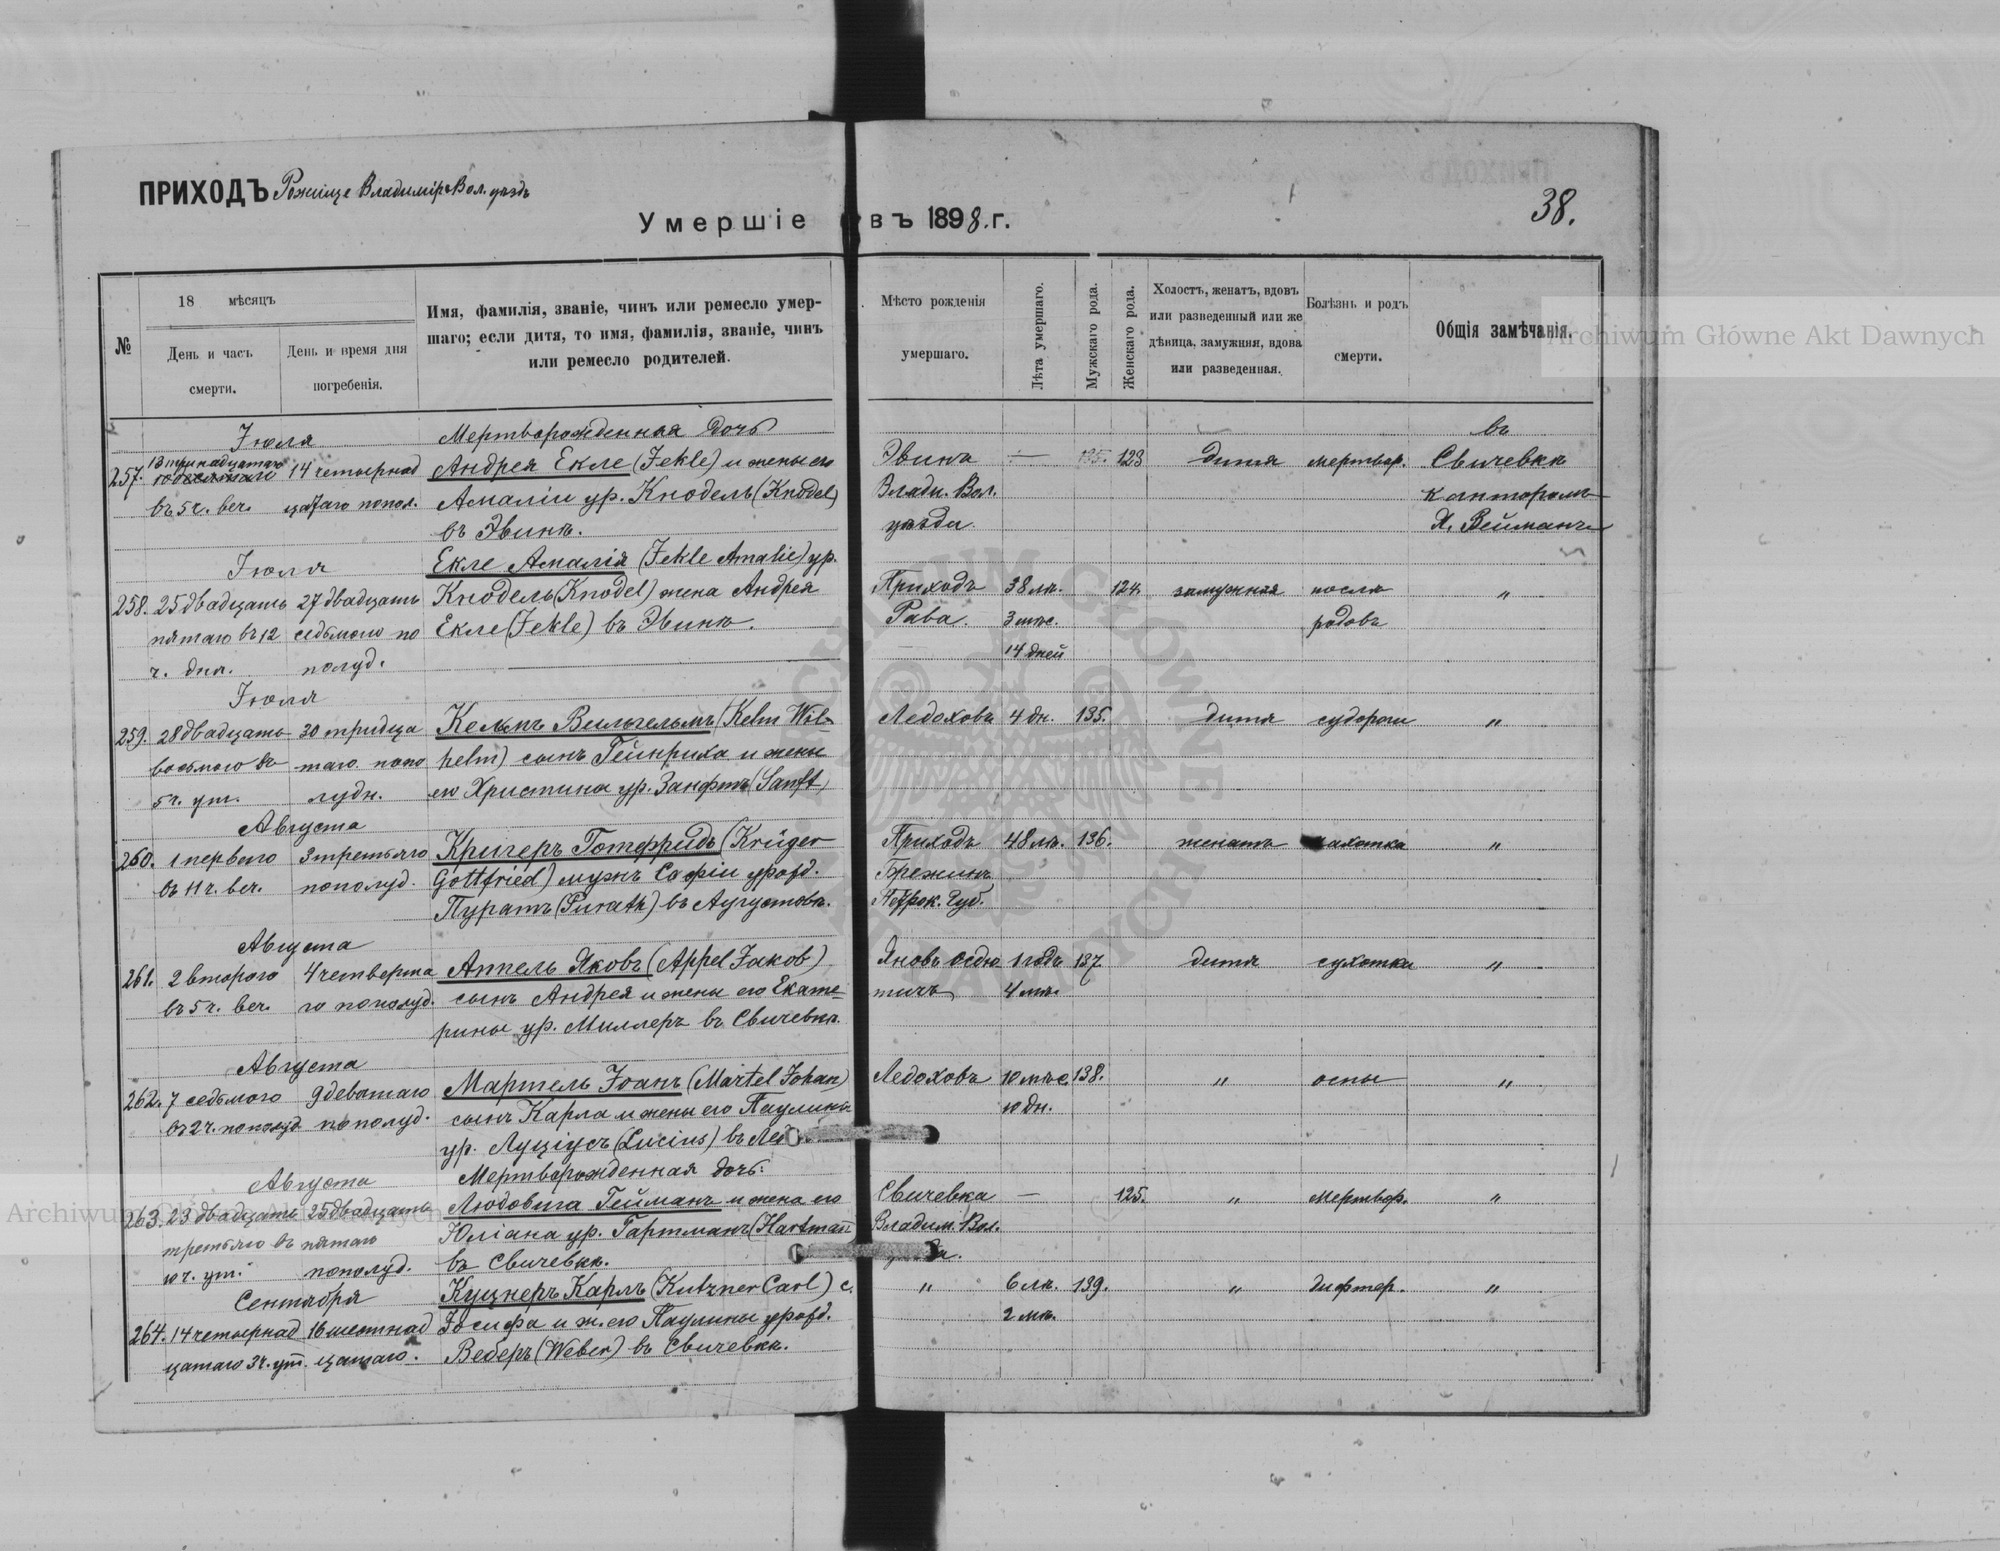 ПРИХОДЪ Рожище Владимір Вол. уѣздъ
Умершіе въ 1898. г.
38.
№
18 мѣсяцъ
День и часъ смерти.
День и время дня погребенія.
Имя, фамилія, званіе, чинъ или ремесло умер-
шаго; если дитя, то имя, фамилія, званіе, чинъ
или ремесло родителей.
Мѣсто рожденія
умершаго.
Лѣта умершаго.
Мужскаго рода.
Женскаго рода.
Холостъ, женатъ, вдовъ
или разведенный или же
дѣвица, замужняя, вдова
или разведенная.
Болѣзнь и родъ
смерти.
Общія замѣчанія.
Archiwum Główne Akt Dawnych
Іюля Мертворожденная дочь въ
257. 13 тринадцатаго 14 четырнад Андрея Екле (Jekle) и жены его Эвинъ — 123 дитя мертвор. Свичевкѣ
въ 5 ч. веч. цатаго попол. Амаліи ур. Кнодель (Knodel) Влади. Вол. канторомъ
въ Эвинѣ. уѣзди. Вейманъ
Іюля Екле Амалія (Jekle Amalie) ур.
258. 25 двадцать 27 двадцать Кнодель (Knodel) жена Андрея Приходъ 38 лѣ. 124. замужняя послѣ "
пятаго въ 12 седьмого по Екле (Jekle) въ Эвинѣ. Рава. 3 мѣс. родовъ
ч. дня. полуд. 14 дней
Іюля
259. 28 двадцать 30 тридца Кельмъ Вильгельмъ (Kelm Wil- Ледоховъ 4 дн. 135. дитя судороги "
восьмого въ таго попо helm) сынъ Гейнриха и жены
5 ч. ут. лудн. его Христина ур. Занфтъ (Sanft)
Августа
260. 1 первого 3 третьяго Кригеръ Готфридъ (Krüger Приходъ 48 лѣ. 136. женатъ чахотка "
въ 11 ч. веч. пополуд. Gottfried) мужъ Софіи урожд. Брежинъ
Пуратъ (Purath) въ Аугустовѣ. Петрок. Губ.
Августа
261. 2 второго 4 четверта Аппель Яковъ (Appel Jakob) Яновъ 1 годъ 137 дитя сухотка "
въ 5 ч. веч. го пополуд. сынъ Андрея и жены его Екате- 4 мѣ.
рины ур. Миллеръ въ Свичевкѣ.
Августа
262. 7 седьмого 9 деватаго Мартель Іоанъ (Martel Johan) Ледоховъ 10 мѣс. 138. " оспы "
въ 2 ч. пополуд пополуд. сынъ Карла и жены его Паулины 10 дн.
ур. Луціусъ (Lucius) въ
Мертворожденная дочь:
Августа
263. 23 двадцать 25 двадцать Людовига Гейманъ и жена его Свичевка — 125. " Мертвор. "
третьяго въ пятаго Юліана ур. Гартманъ (Hartman Владим. Вол.
10 ч. ут. пополуд. въ Свичевкѣ.
Archiwum Główne Akt Dawnych
Сентября Куцнеръ Карлъ (Kutzner Carl) с. " 6 лѣ. 139. " дифтер. "
264. 14 четырнад 16 шестнад Іосифа и ж. его Паулины урожд. 2 мѣ.
цатаго 3 ч. ут. цатаго. Веберъ (Weber) въ Свичевкѣ.